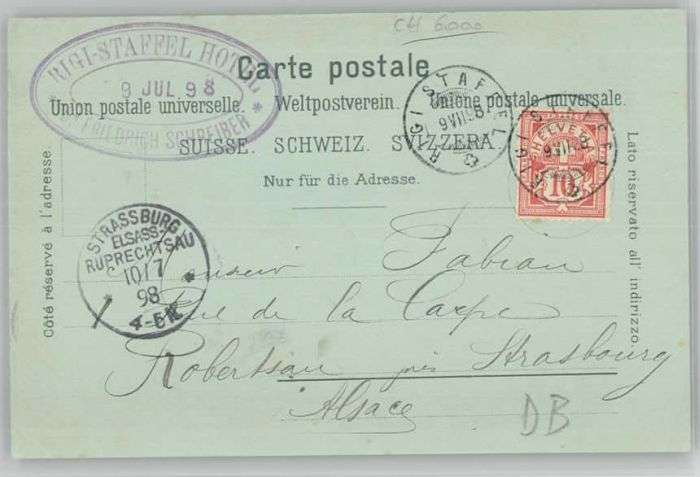 CH 6000
RIGI-STAFFEL HOTEL
9 JUL. 98
FRIEDRICH SCHREIBER
Carte postale
Union postale universelle. Weltpostverein. Unione postale universale.
SUISSE. SCHWEIZ. SVIZZERA.
Nur für die Adresse.
RIGI STAFFEL
9 VII 98
HELVETIA
10
RIGI STAFFEL
9 VII 98
Côté réservé à l'adresse.
Lato riservato all' indirizzo.
STRASSBURG
ELSASS-
RUPRECHTSAU
10/7
98
4-5N.
Monsieur Fabian
Rue de la Carpe
Robertsau près Strasbourg
Alsace
DB